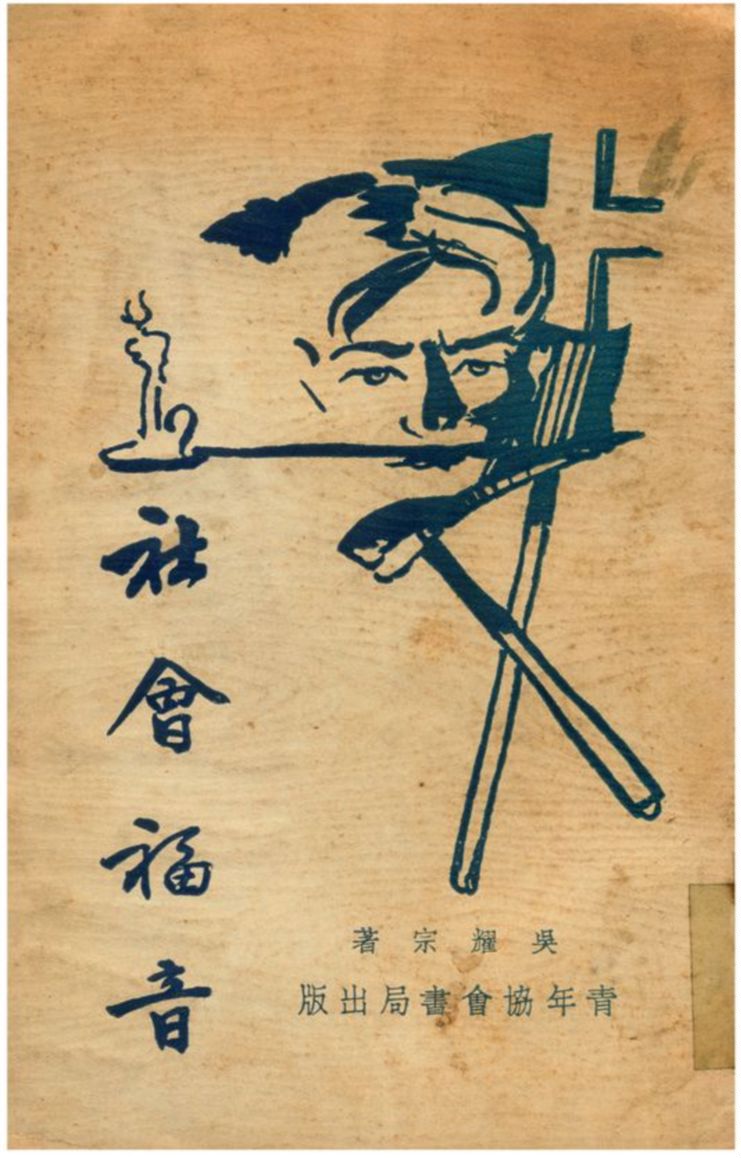 社會福音
吳耀宗著
青年協會書局出版